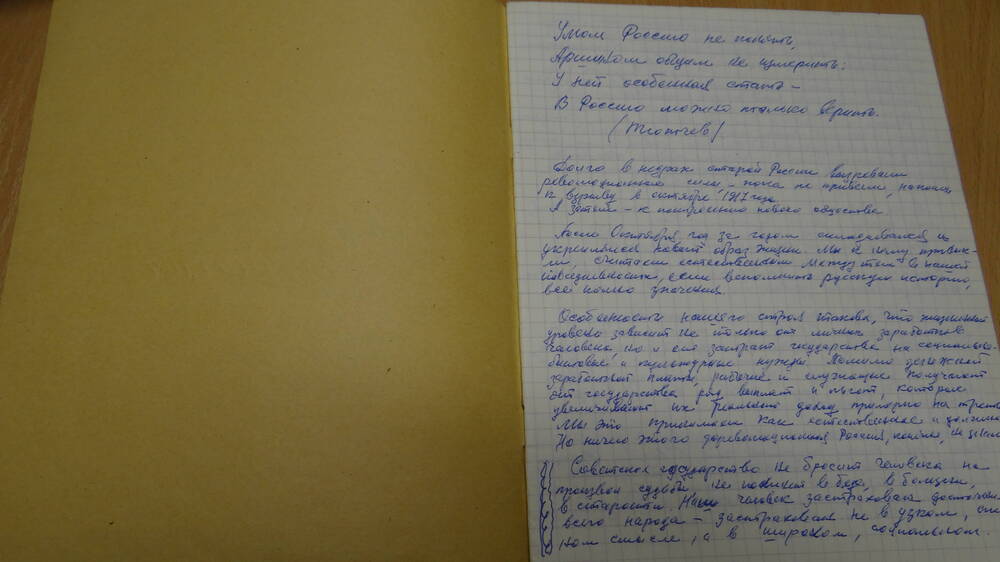 Умом Россию не понять,
Аршином общим не измерить:
У ней особенная стать –
В Россию можно только верить.
(Тютчев)
Долго в недрах старой России вызревали
революционные силы, – пока не привели, наконец
к взрыву в октябре 1917 года.
А затем – к построению нового общества.
После Октября год за годом складывался и
укреплялся новый образ жизни. Мы к нему привык-
ли, считаем естественным. Между тем в нашей
повседневности, если вспомнить русскую историю,
всё полно значения.
Особенности нашего строя таковы, что жизненный
уровень зависит не только от личных заработков
человека, но и от затрат государства на социально-
бытовые и культурные нужды. Помимо денежной
заработной платы, рабочие и служащие получают
от государства ряд выплат и льгот, которые
увеличивают их реальный доход примерно на треть.
Мы это принимаем как естественное и должное
Но ничего этого дореволюционная Россия, конечно, не знала
Советское государство не бросит человека на
произвол судьбы, не покинет в беде, в болезни,
в старости. Наш человек застрахован достоянием
всего народа – застрахован не в узком,
ном смысле, а в широком, социальном.